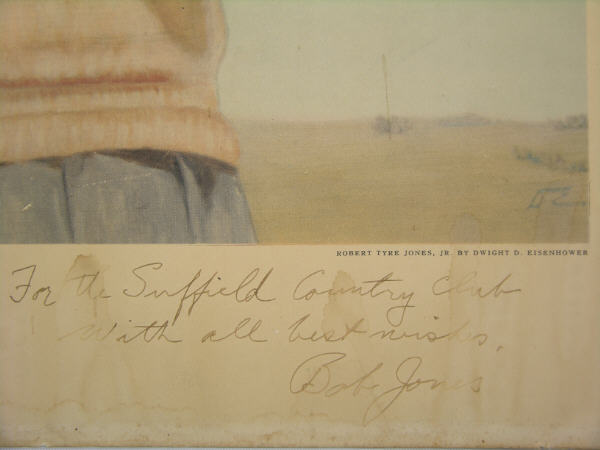 DE
ROBERT TYRE JONES, JR. BY DWIGHT D. EISENHOWER
For the Suffield Country Club
With all best wishes,
Bob Jones